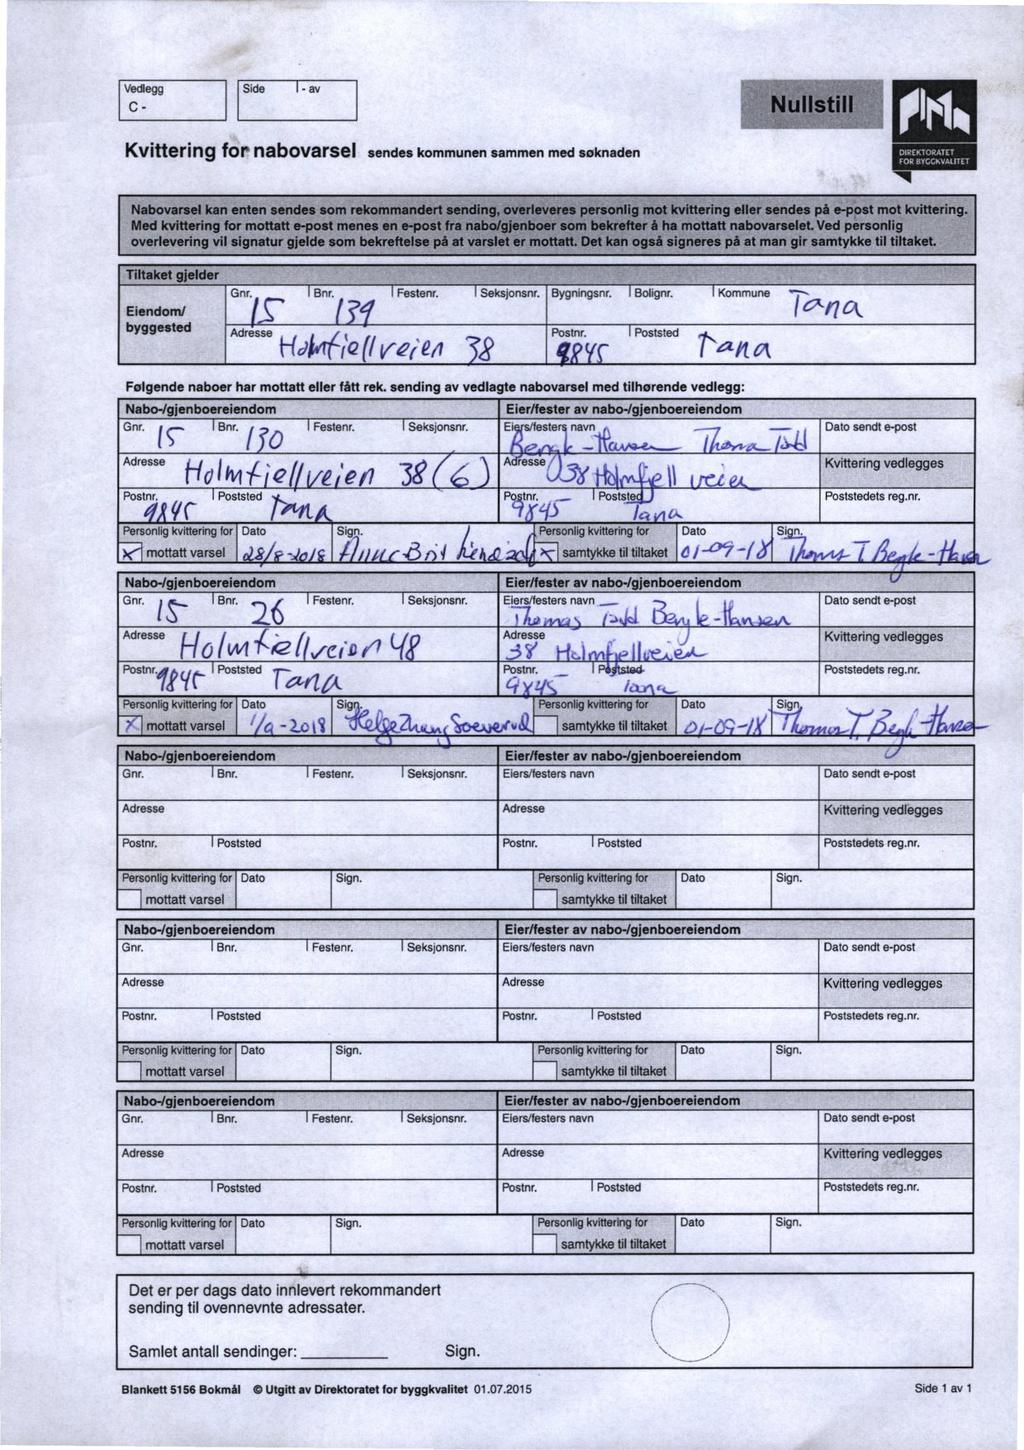 Vedlegg Side - av
C -
Nullstill
DIREKTORATET
FOR BYGGKVALITET
Kvittering for nabovarsel sendes kommunen sammen med søknaden
Nabovarsel kan enten sendes som rekommandert sending, overleveres personlig mot kvittering eller sendes på e-post mot kvittering.
Med kvittering for mottatt e-post menes en e-post fra nabo/gjenboer som bekrefter å ha mottatt nabovarselet. Ved personlig
overlevering vil signatur gjelde som bekreftelse på at varslet er mottatt. Det kan også signeres på at man gir samtykke til tiltaket.
Tiltaket gjelder
Eiendom/
byggested
Gnr. Bnr. Festenr. Seksjonsnr. Bygningsnr. Bolignr. Kommune
15 139 Tana
Adresse Postnr. Poststed
Holmfiellveien 38 9845 Tana
Følgende naboer har mottatt eller fått rek. sending av vedlagte nabovarsel med tilhørende vedlegg:
Nabo-/gjenboereiendom Eier/fester av nabo-/gjenboereiendom
Gnr. Bnr. Festenr. Seksjonsnr. Eiers/festers navn Dato sendt e-post
15 130 Bengk-Hansen Thomas Todd
Adresse Adresse Kvittering vedlegges
Holmfiellveien 38 (6) 38 Holmfjellveien
Postnr. Poststed Postnr. Poststed Poststedets reg.nr.
9845 Tana 9845 Tana
Personlig kvittering for Dato Sign. Personlig kvittering for Dato Sign.
X mottatt varsel 28/8-2018 X samtykke til tiltaket 01-09-18 Thomas T
Nabo-/gjenboereiendom Eier/fester av nabo-/gjenboereiendom
Gnr. Bnr. Festenr. Seksjonsnr. Eiers/festers navn Dato sendt e-post
15 26 Thomas Todd Bengk-Hansen
Adresse Adresse Kvittering vedlegges
Holmfiellveien 48 38 Holmfjellveien
Postnr. Poststed Postnr. Poststed Poststedets reg.nr.
9845 Tana 9845 Tana
Personlig kvittering for Dato Sign. Personlig kvittering for Dato Sign.
X mottatt varsel 1/9-2018 samtykke til tiltaket 01-09-18 Thomas T.
Nabo-/gjenboereiendom Eier/fester av nabo-/gjenboereiendom
Gnr. Bnr. Festenr. Seksjonsnr. Eiers/festers navn Dato sendt e-post
Adresse Adresse Kvittering vedlegges
Postnr. Poststed Postnr. Poststed Poststedets reg.nr.
Personlig kvittering for Dato Sign. Personlig kvittering for Dato Sign.
mottatt varsel samtykke til tiltaket
Nabo-/gjenboereiendom Eier/fester av nabo-/gjenboereiendom
Gnr. Bnr. Festenr. Seksjonsnr. Eiers/festers navn Dato sendt e-post
Adresse Adresse Kvittering vedlegges
Postnr. Poststed Postnr. Poststed Poststedets reg.nr.
Personlig kvittering for Dato Sign. Personlig kvittering for Dato Sign.
mottatt varsel samtykke til tiltaket
Nabo-/gjenboereiendom Eier/fester av nabo-/gjenboereiendom
Gnr. Bnr. Festenr. Seksjonsnr. Eiers/festers navn Dato sendt e-post
Adresse Adresse Kvittering vedlegges
Postnr. Poststed Postnr. Poststed Poststedets reg.nr.
Personlig kvittering for Dato Sign. Personlig kvittering for Dato Sign.
mottatt varsel samtykke til tiltaket
Det er per dags dato innlevert rekommandert
sending til ovennevnte adressater.
Samlet antall sendinger: Sign.
Blankett 5156 Bokmål © Utgitt av Direktoratet for byggkvalitet 01.07.2015 Side 1 av 1